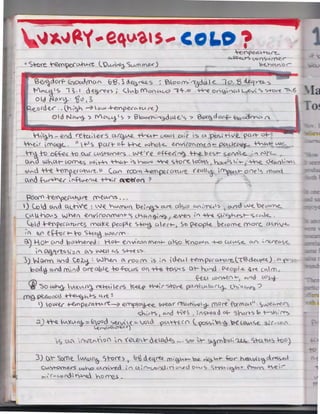 LUXURY-equals-COLD?
temperature
affects consumer
behavior
• Store temperature (During Summer)
Bergdorf Goodman 68.3 degrees ; Bloomingdale 70.8 degrees
Macy's 73.1 degrees ; Club Monaco 74.0 the original Levi's store 76.8
Old Navy 80.3
Reorder (high → low temperature)
Old Navy > Macy's > Bloomingdale's > Bergdorf Goodman
High-end retailers argue that cool air is a positive part of
their image. "It's part of the whole environment package that we
try to offer to our customers. We're offering the best service in
and what comes with that is how the store looks, how is lit, the attention
and the temperature." Can room temperature really impact one's mood
and further influence their action?
Room temperature means...
1) Cold and active: We human beings are also animals, and we become
cautious when environment's changing, even in the slightest scale.
Cold temperatures make people stay alert, so people become more active
in an effort to stay warm.
2) Hot and bothered: Hot environment also known to cause an increase
in aggression as well as stress.
3) Warm and Cozy: When a room is in ideal temperature (78 degree),
body and mind are able to focus on the tasks at hand. People are calm,
feel content, and cozy
So why luxury retailers keep their store particularly chilling?
my personal thoughts are:
1) lower temperature → employee wear relatively more formal sweaters,
shirts, and ties, instead of shorts & t-shirts
2) the luxury = good service = cold pattern (possibly because aircon
is an invention in recent decades so it symbolizes status too)
3) at some luxury stores, 68 degree might be right for heavily dressed
customers who arrived in air conditioned cars straight from their
air-conditioned homes.